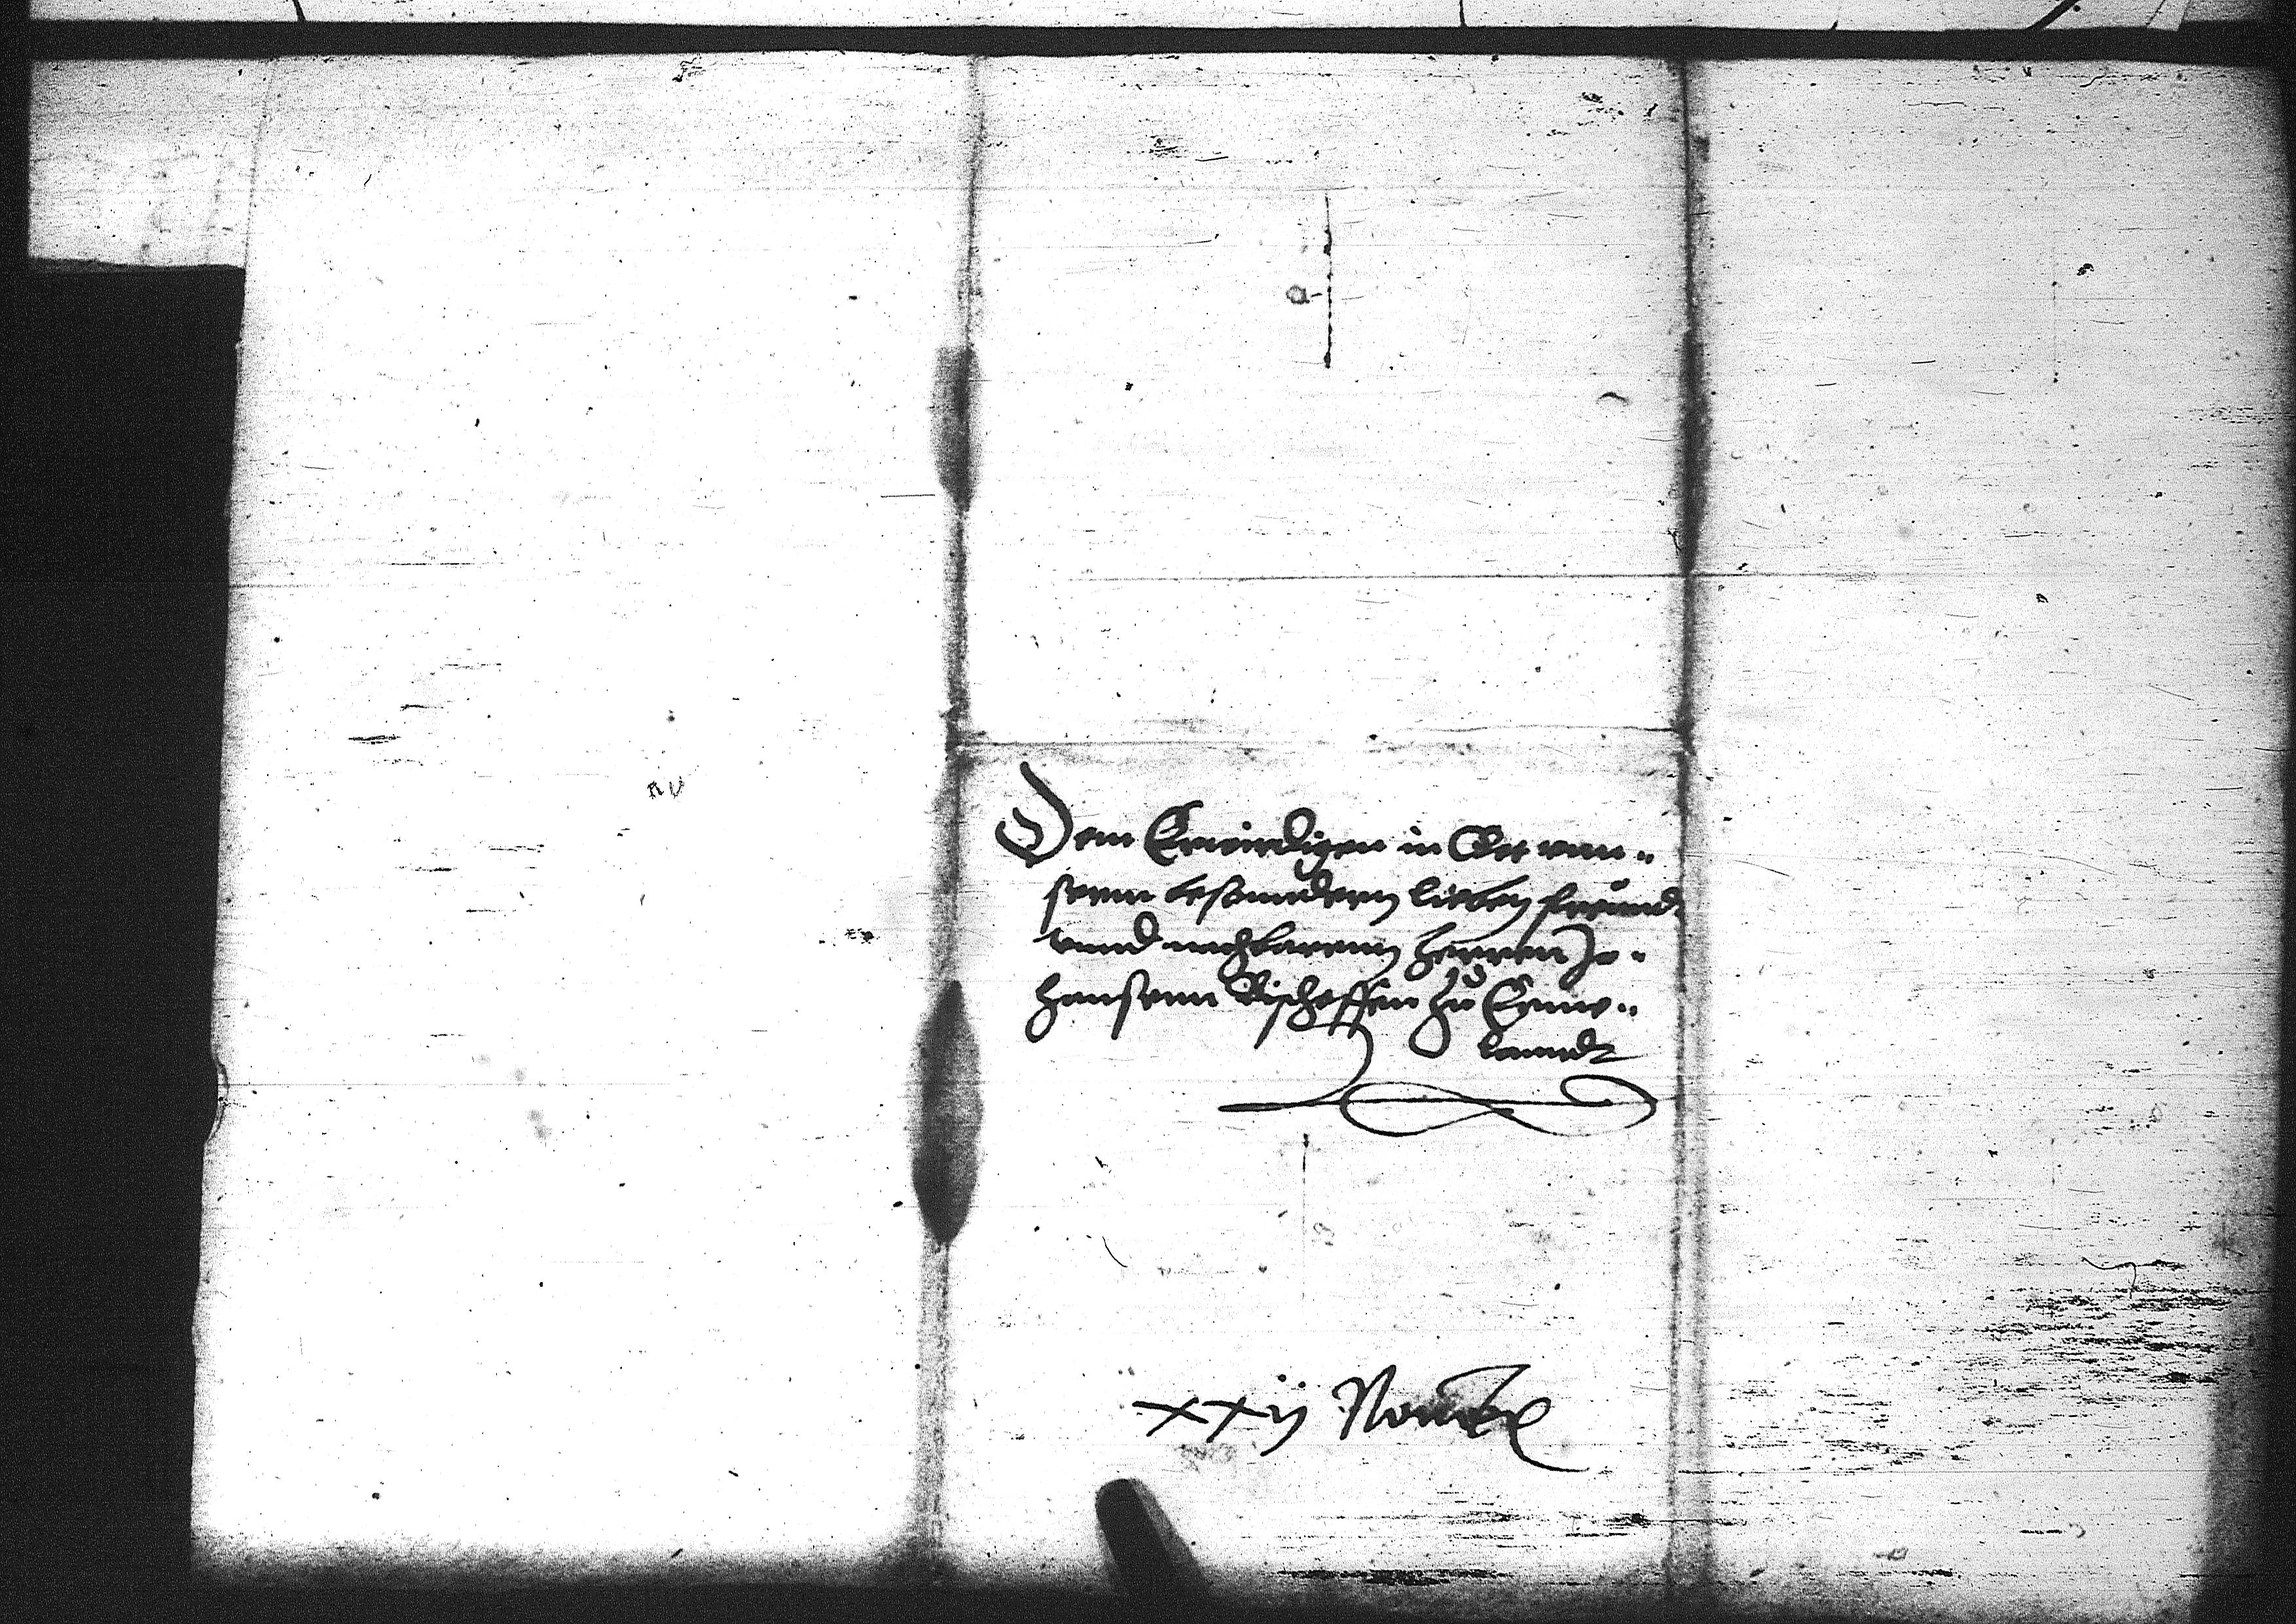 Dem Erwirdigen in Got vnn„
sernn besonndern lieben freund
vnnd nachbarnn herren Jo„
hansenn Bischoffen zů Erme„
lanndt
xxij Nouēbr